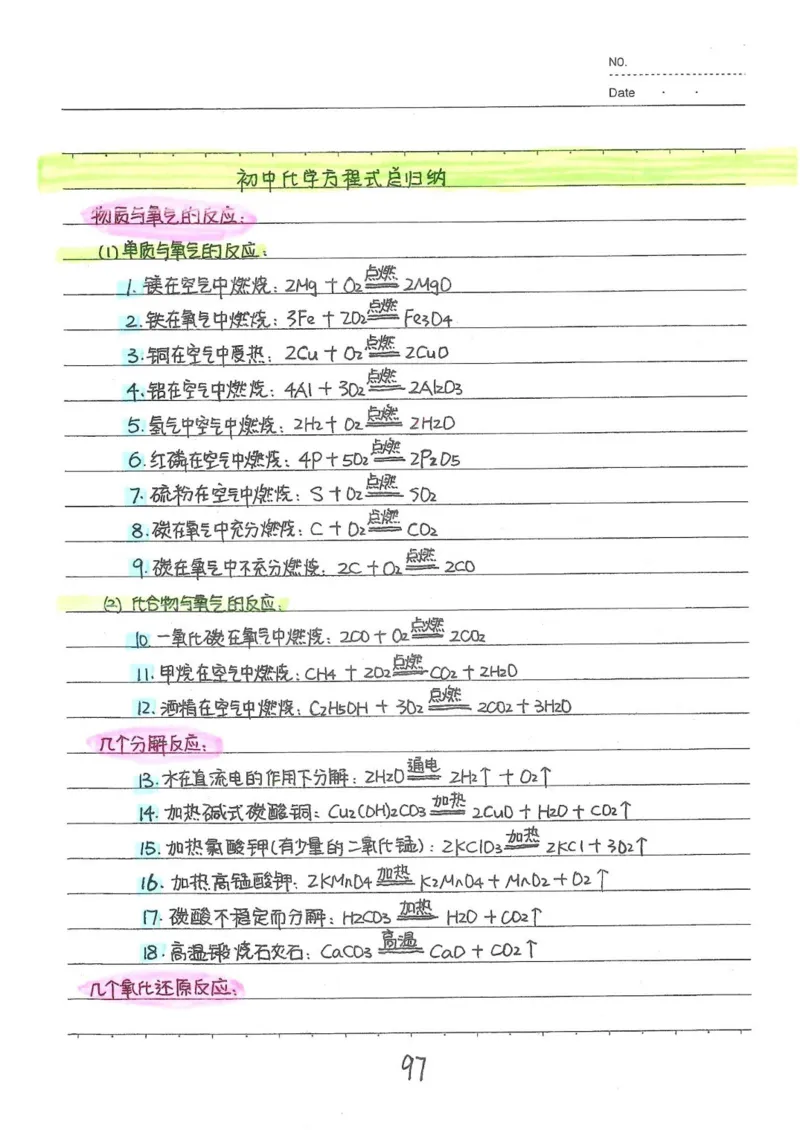 NO.
Date · ·
初中化学方程式总归纳
物质与氧气的反应:
(1)单质与氧气的反应:
1. 镁在空气中燃烧: 2Mg + O2 点燃 2MgO
2. 铁在氧气中燃烧: 3Fe + 2O2 点燃 Fe3O4
3. 铜在空气中受热: 2Cu + O2 点燃 2CuO
4. 铝在空气中燃烧: 4Al + 3O2 点燃 2Al2O3
5. 氢气中空气中燃烧: 2H2 + O2 点燃 2H2O
6. 红磷在空气中燃烧: 4P + 5O2 点燃 2P2O5
7. 硫粉在空气中燃烧: S + O2 点燃 SO2
8. 碳在氧气中充分燃烧: C + O2 点燃 CO2
9. 碳在氧气中不充分燃烧: 2C + O2 点燃 2CO
(2) 化合物与氧气的反应:
10. 一氧化碳在氧气中燃烧: 2CO + O2 点燃 2CO2
11. 甲烷在空气中燃烧: CH4 + 2O2 点燃 CO2 + 2H2O
12. 酒精在空气中燃烧: C2H5OH + 3O2 点燃 2CO2 + 3H2O
几个分解反应:
13. 水在直流电的作用下分解: 2H2O 通电 2H2↑ + O2↑
14. 加热碱式碳酸铜: Cu2(OH)2CO3 加热 2CuO + H2O + CO2↑
15. 加热氯酸钾(有少量的二氧化锰): 2KClO3 加热 2KCl + 3O2↑
16. 加热高锰酸钾: 2KMnO4 加热 K2MnO4 + MnO2 + O2↑
17. 碳酸不稳定而分解: H2CO3 加热 H2O + CO2↑
18. 高温锻烧石灰石: CaCO3 高温 CaO + CO2↑
几个氧化还原反应:
97